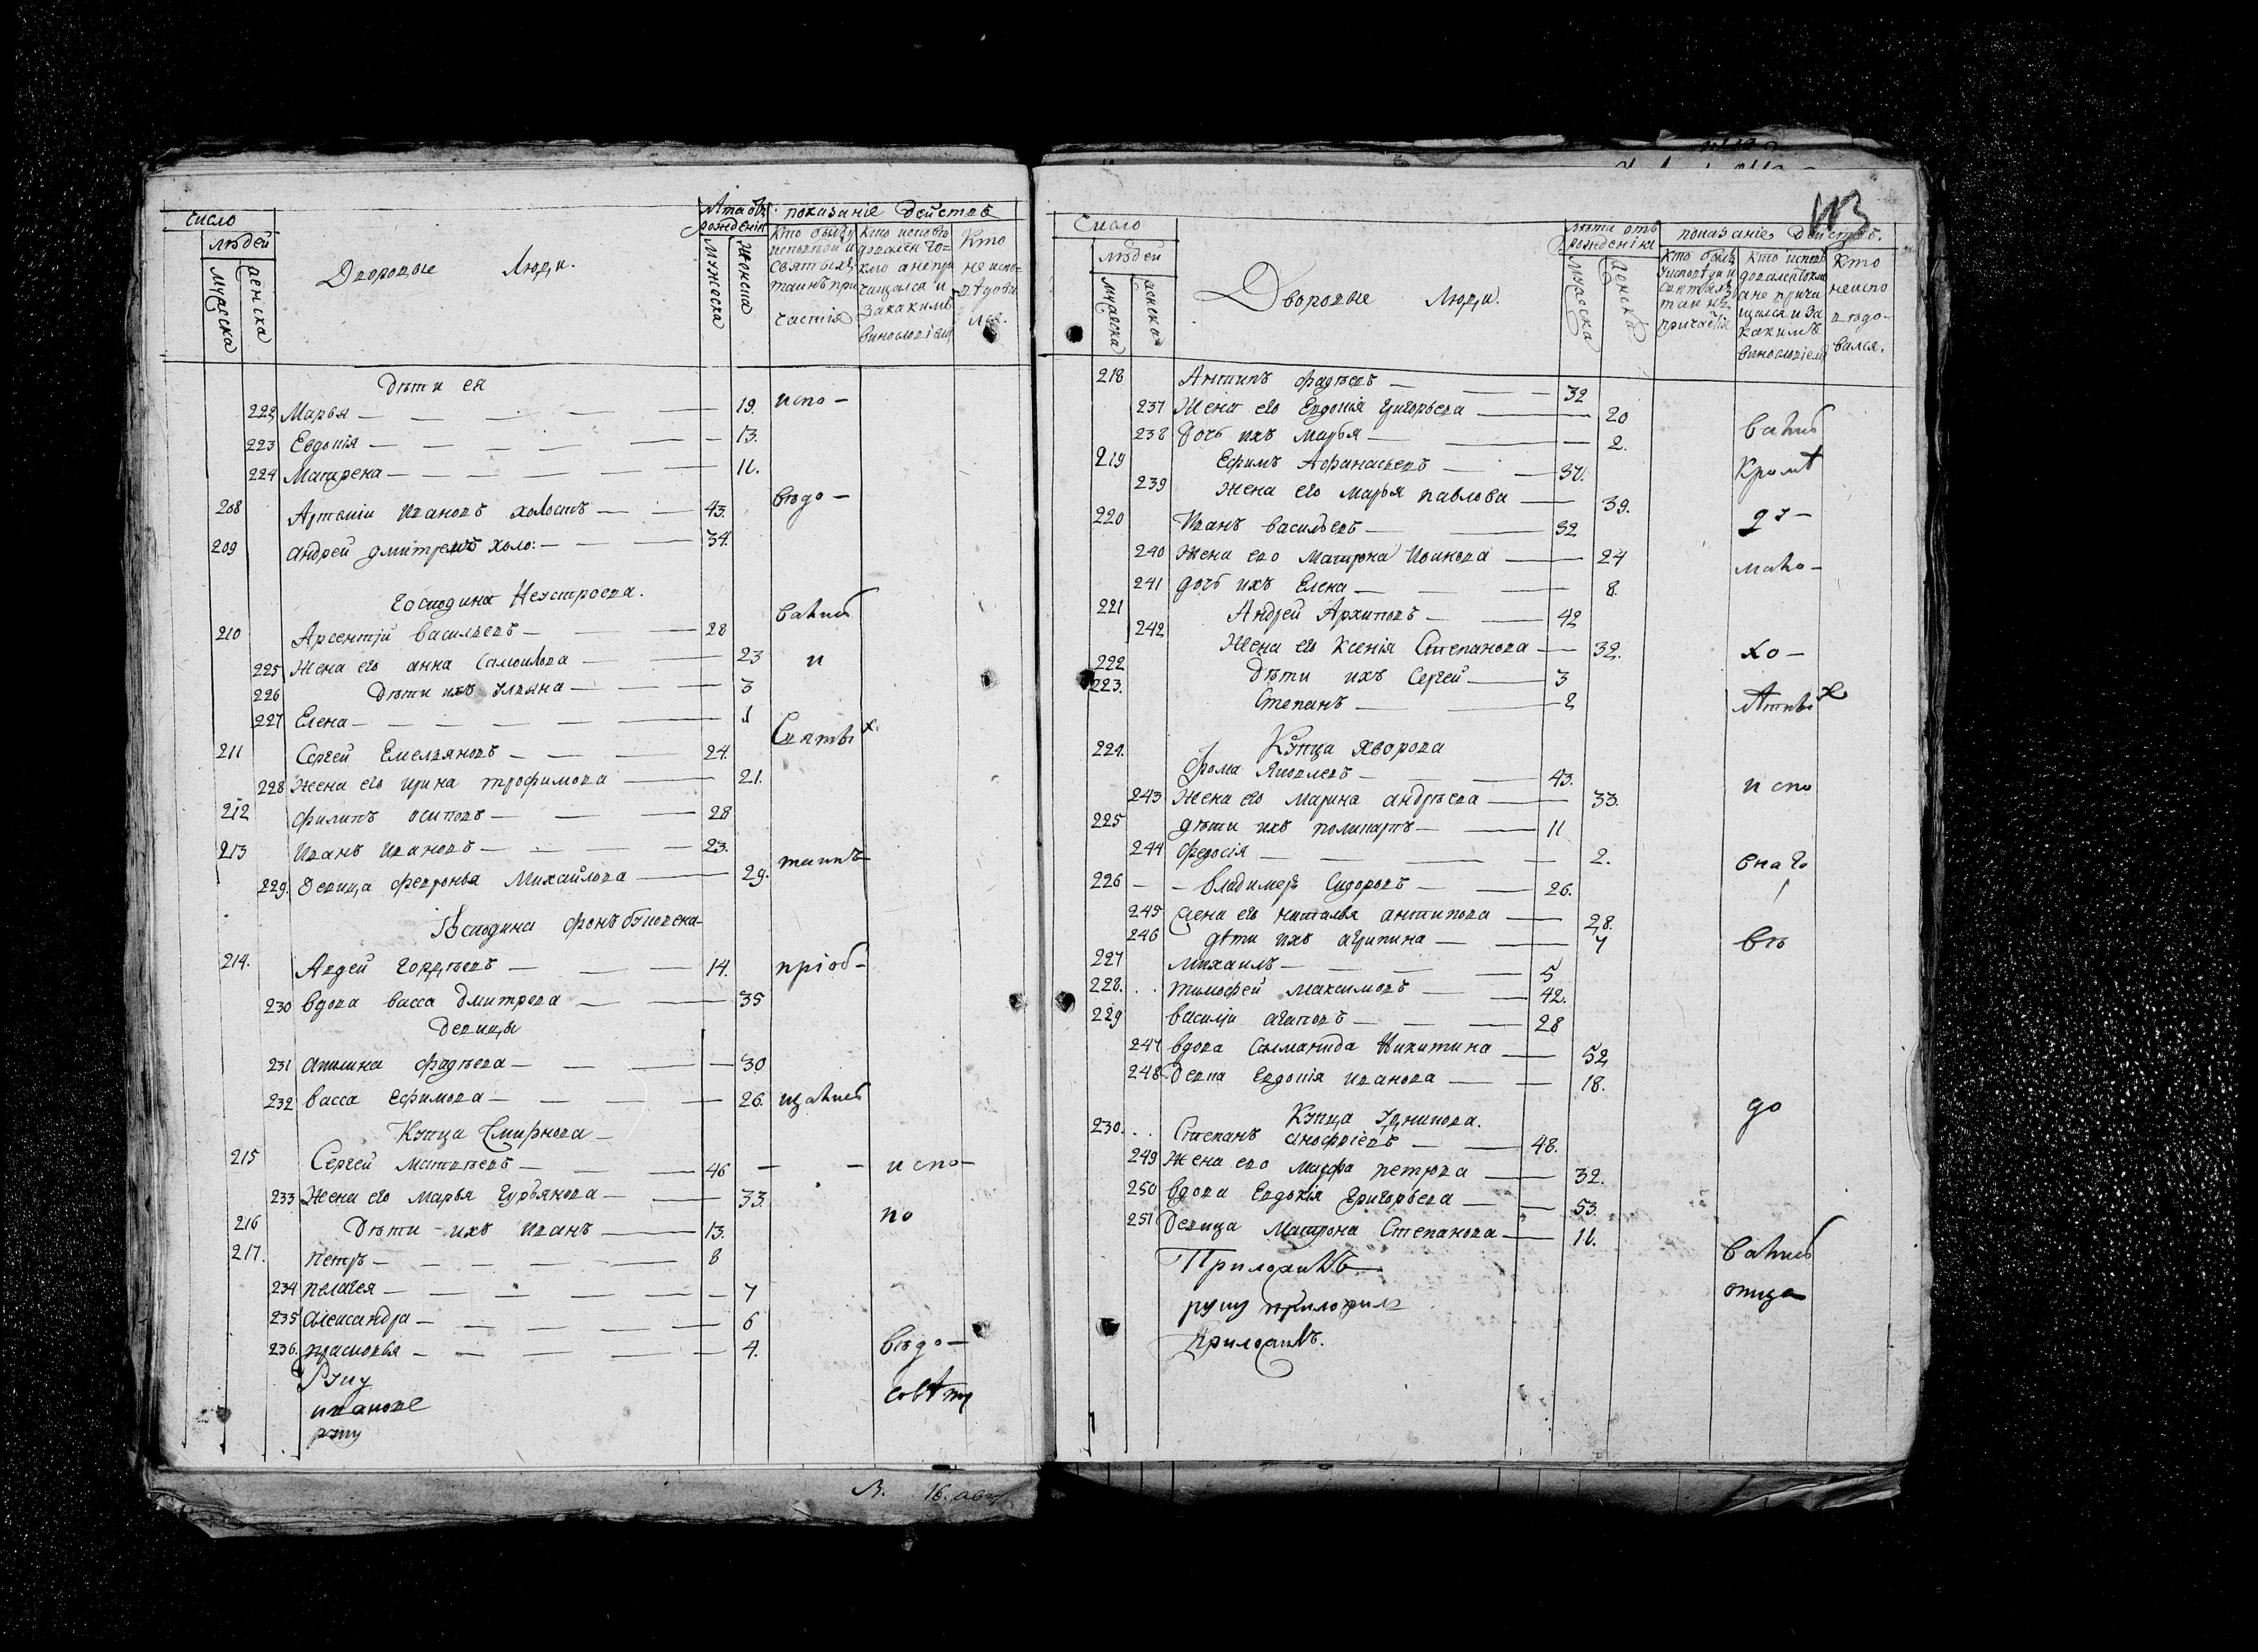 число
людей
мужеска
женска
Дворовые Люди.
Лѣта отъ рожденія
мужеска
женска
показаніе Действъ
кто былъ у исповѣди и святыхъ таинъ причастія
кто исповѣдовался токмо а непричащался и за какимъ винословіемъ
кто не исповѣдовался.
Дѣти ея
222 Марья — 19. испо-
223 Евдокія — 13.
224 Матрена — 11.
208 Артеміи Ивановъ холостъ — 43. вѣдо-
209 андрей дмитревъ холо: — 34.
Господина Неустроева.
210 Арсентій васильевъ — 28 вались
225 жена его анна Самоилова — 23 и
226 Дѣти ихъ ульяна — 3
227 Елена — 1
211 Сергей Емельяновъ — 24. Святых
228 жена его ирина трофимова — 21.
212 филипъ осиповъ — 28
213 Иванъ ивановъ — 23.
229. девица февронья Михайлова — 29. таинъ
Господина фонъ
214. Авдей гордѣевъ — 14. пріоб-
230 вдова васса дмитрева — 35
девицы
231 акилина фадѣева — 30
232 васса ефимова — 26. щались
Купца Смирнова
215 Сергей матвѣевъ — 46 — испо-
233 жена его марья гурьянова — 33.
216 Дѣти ихъ иванъ — 13. по
217. петръ — 8
234 пелагея — 7
235 александра — 6
236. прасковья — 4. вѣдо-
Руку
иванове
руку
В. 16. авгу
113
число
людей
мужеска
женска
Дворовые Люди.
лѣта отъ рожденія
мужеска
женска
показаніе Действ.
кто былъ у исповѣди и святыхъ таинъ причастія
кто исповѣдовался токмо а не причащался и за какимъ винословіемъ
кто неисповѣдовался.
218 Антипъ фадѣевъ — 32
237 жена его Евдокія григорьева — 20 вались
238 дочь ихъ марья — 2.
219 Ефимъ Афанасьевъ — 37. кромѣ
239 жена его марья павлова — 39.
220 Иванъ васильевъ — 32
240 жена его матрона Иванова — 24 мало-
241 дочь ихъ Елена — 8.
221 Андрей Архиповъ — 42
242 жена его Ксенія Степанова — 32.
222 Дѣти ихъ Сергей — 3
223. Степанъ — 2 лѣтных
Купца яворова
224. фома яковлевъ — 43. испо
243 жена его марина андрѣева — 33.
225 дѣти ихъ поликарпъ — 11
244 федосія — 2.
226 — владимеръ Сидоровъ — 26.
245 жена его наталья антипова — 28.
246 дѣти ихъ агрипина — 7 вѣ
227 михаилъ — 5
228. тимофей максимовъ — 42.
229 василіи агаповъ — 28
247 вдова Саламанида Никитина — 52
248 девка евдокія иванова — 18.
до
Купца
230. Степанъ анофріевъ — 48.
249 жена его марфа петрова — 32.
250 вдова Евдокія Григорьева — 53.
251 девица матрона Степанова — 11.
Приложилъ вались
руку приложилъ отца
приложилъ.